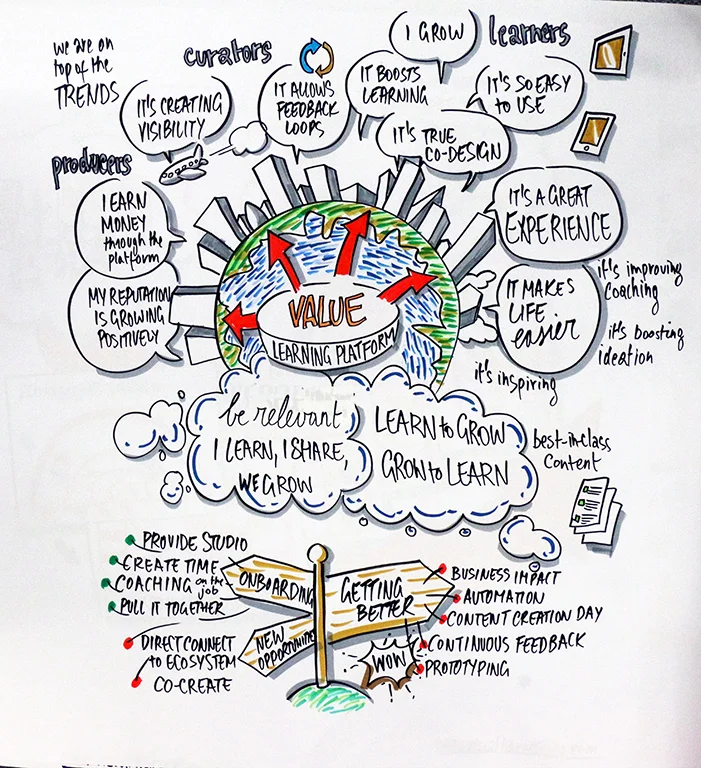 we are on
top of the
TRENDS
curators
learners
I GROW
IT'S CREATING
VISIBILITY
IT ALLOWS
FEEDBACK
LOOPS
IT BOOSTS
LEARNING
IT'S SO EASY
TO USE
IT'S TRUE
CO-DESIGN
producers
I EARN
MONEY
through the
platform
IT'S A GREAT
EXPERIENCE
MY REPUTATION
IS GROWING
POSITIVELY
IT MAKES
LIFE
easier
it's improving
Coaching
it's boosting
ideation
VALUE
LEARNING PLATFORM
it's inspiring
be relevant
I LEARN, I SHARE,
WE GROW
LEARN to GROW
GROW to LEARN
best-in-class
Content
PROVIDE STUDIO
CREATE TIME
COACHING on the job
PULL IT TOGETHER
DIRECT CONNECT
TO ECOSYSTEM
CO-CREATE
ONBOARDING
GETTING
BETTER
NEW
OPPORTUNITIES
WOW
BUSINESS IMPACT
AUTOMATION
CONTENT CREATION DAY
CONTINUOUS FEEDBACK
PROTOTYPING